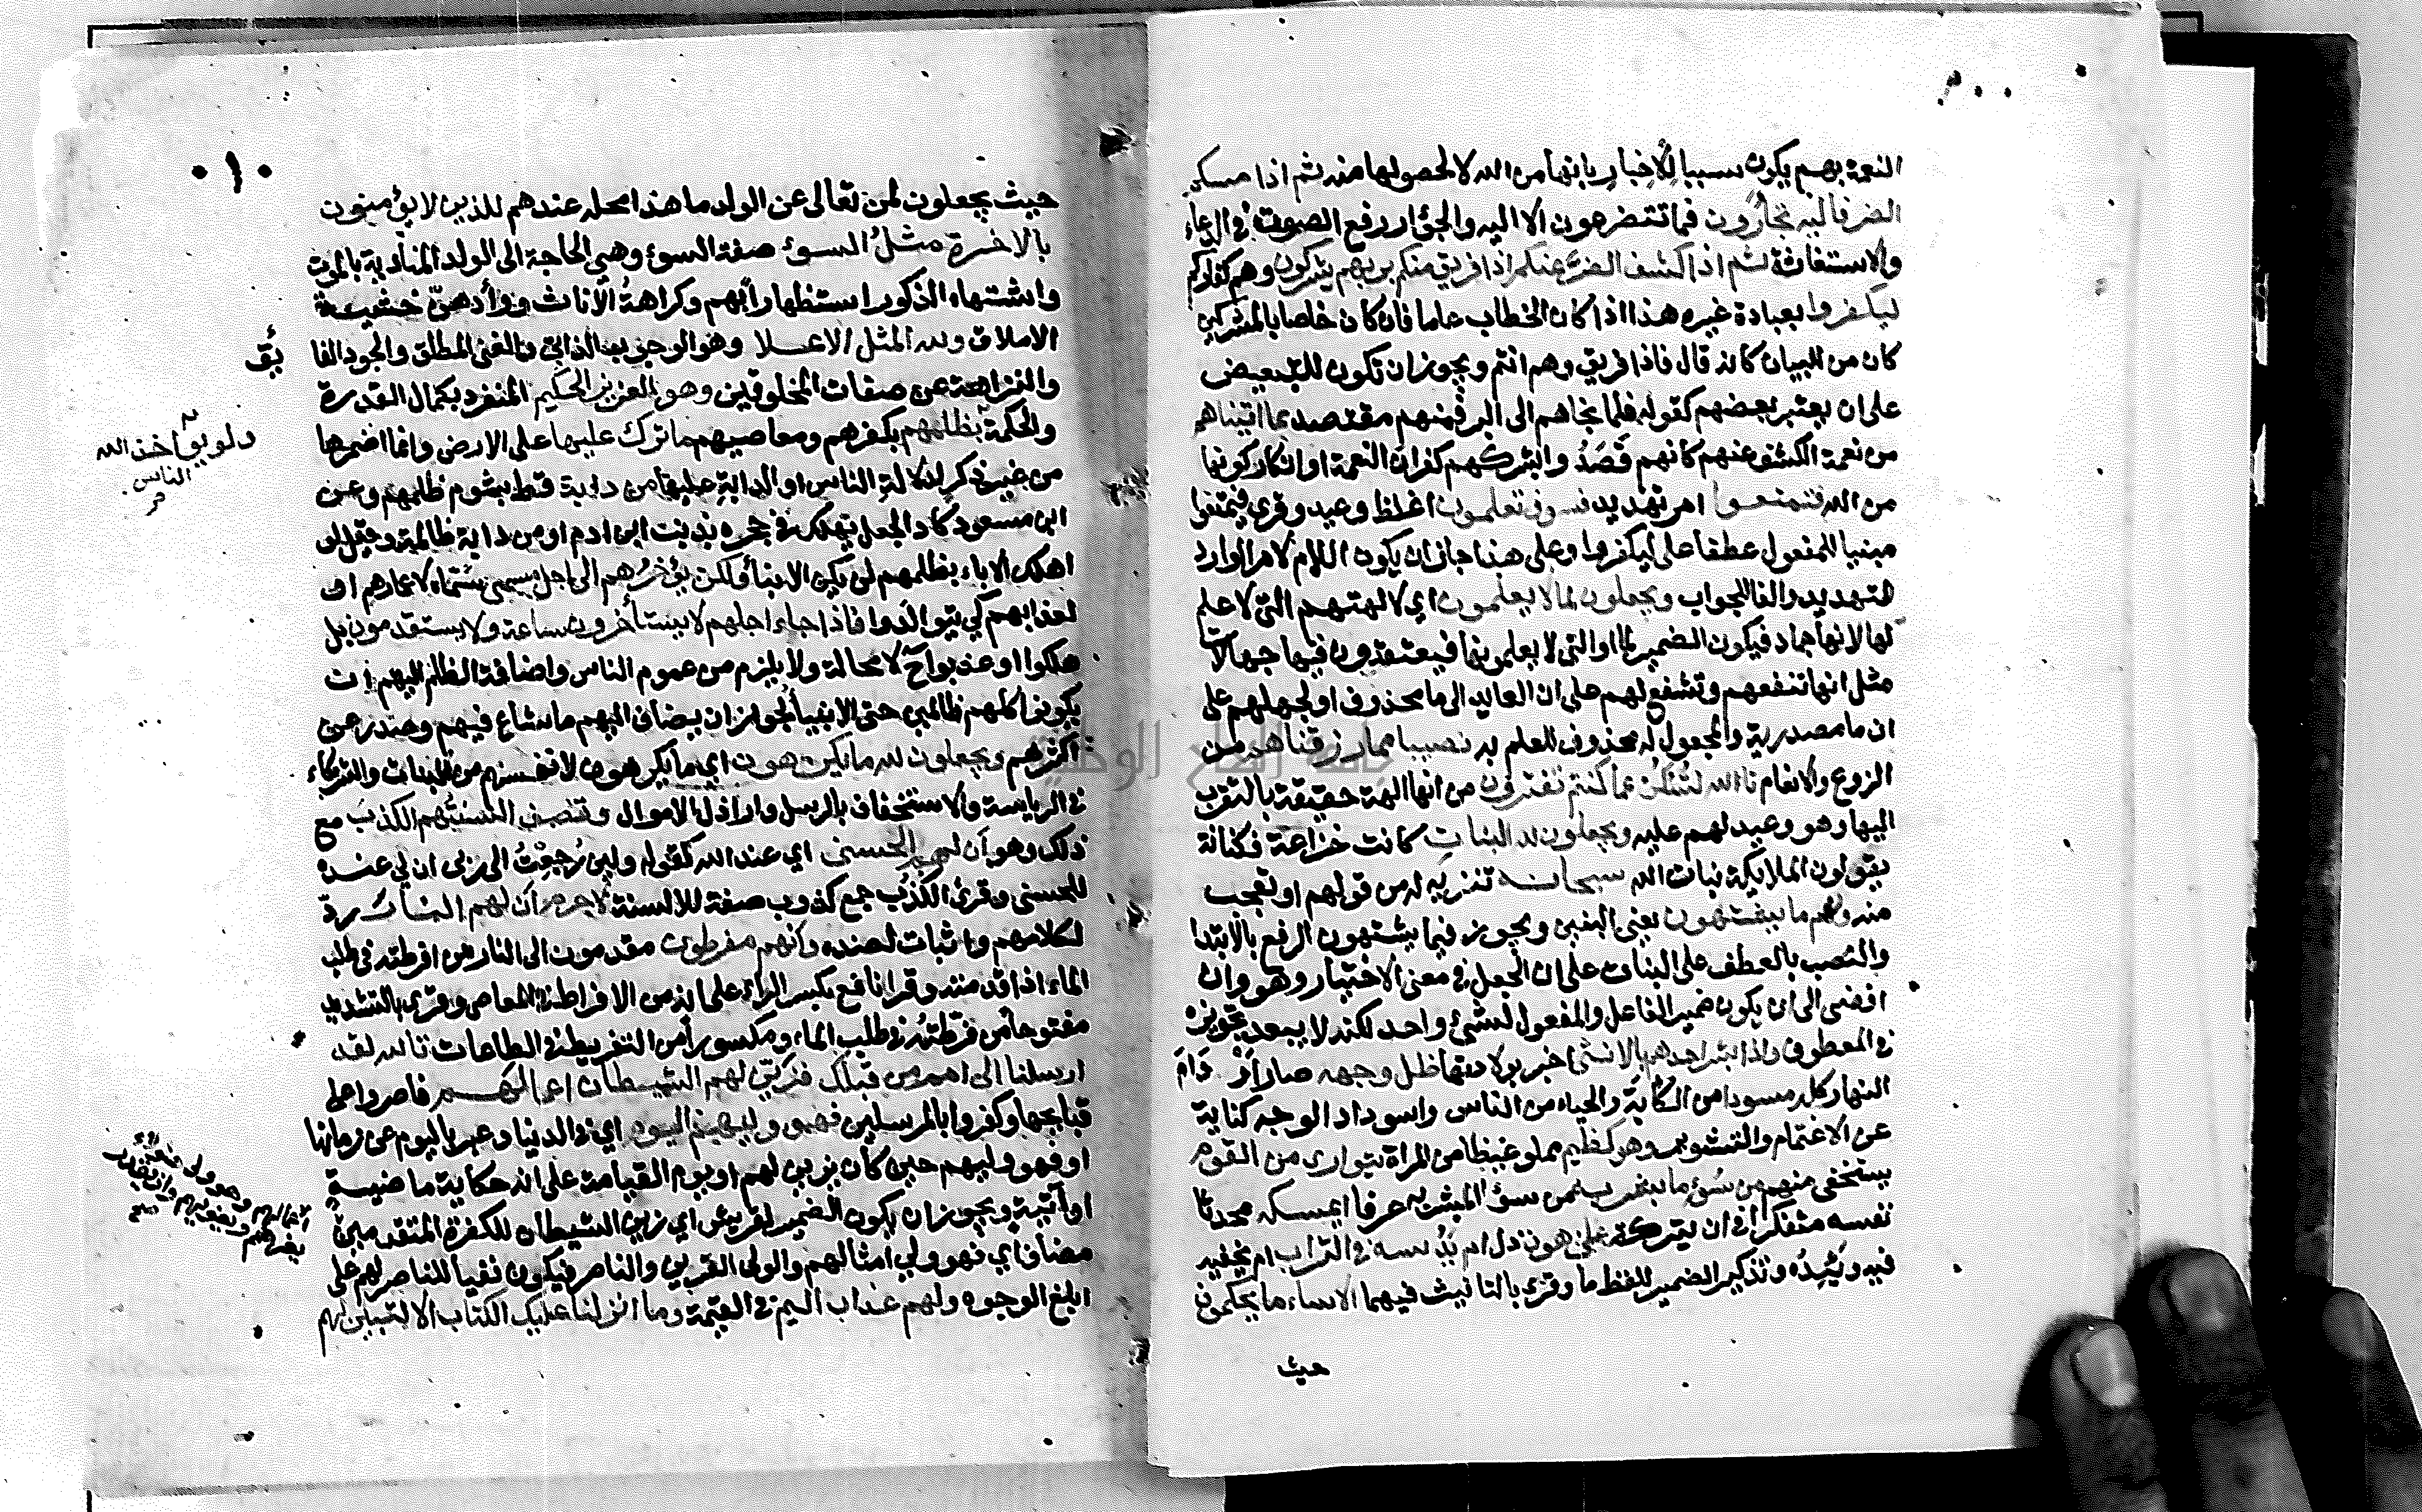 النعمة بهم يكون سببا للاخبار بانها من الله لا لحصولها منه ثم اذا مسكم
الضر فاليه تجأرون فما تتضرعون الا اليه والجؤار رفع الصوت في الدعاء
والاستغاثة ثم اذا كشف الضر عنكم اذا فريق منكم بربهم يشركون وهم كفاركم
ليكفروا بعبادة غيره هذا اذا كان الخطاب عاما فان كان خاصا بالمشركين
كان من للبيان كانه قال فاذا فريق وهم انتم ويجوز ان تكون للتبعيض
على ان يعتبر بعضهم كقوله فلما نجاهم الى البر فمنهم مقتصد بما اتيناهم
من نعمة الكشف عنهم كانهم قصدوا بشركهم كفران النعمة او انكار كونها
من الله فتمتعوا امر تهديد فسوف تعلمون اغلظ وعيد وقرئ فيمتعوا
مبنيا للمفعول عطفا على ليكفروا وعلى هذا جاز ان يكون اللام لام الامر الوارد
للتهديد والفا للجواب ويجعلون لما لا يعلمون اي لالهتهم التي لا علم
لها لانها جماد فيكون الضمير لما او التي لا يعلمونها فيعتقدون فيها جهالات
مثل انها تنفعهم وتشفع لهم على ان العايد الى ما محذوف او لجهلهم على
ان ما مصدرية والمجعول له محذوف للعلم به نصيبا مما رزقناهم من
الزرع والانعام تالله لتسئلن عما كنتم تفترون من انها الهة حقيقة بالتقرب
اليها وهو وعيد لهم عليه ويجعلون لله البنات كانت خزاعة وكنانة
يقولون الملايكة بنات الله سبحانه تنزيه له من قولهم او تعجب
منه ولهم ما يشتهون يعني البنين ويجوز فيما يشتهون الرفع بالابتدا
والنصب بالعطف على البنات على ان الجعل في معنى الاختيار وهو وان
افضى الى ان يكون ضمير الفاعل والمفعول لشيئ واحد لكنه لا يبعد تجويزه
في المعطوف واذا بشر احدهم بالانثى اخبر بولادتها ظل وجهه صار او دام
النهار كله مسودا من الكآبة والحياء من الناس واسوداد الوجه كناية
عن الاغتمام والتشوير وهو كظيم مملو غيظا من المراة يتوارى من القوم
يستخفي منهم من سوء ما بشر به من سوء المبشر به عرفا ايمسكه محدثا
نفسه متفكرا في ان يتركه على هون ذل ام يدسه في التراب ام يخفيه
فيه ويئده وتذكير الضمير للفظ ما وقرئ بالتانيث فيهما الاساء ما يحكمون
حيث
حيث يجعلون لمن تعالى عن الولد ما هذا محله عندهم للذين لا يؤمنون
بالاخرة مثل السوء صفة السوء وهي الحاجة الى الولد المنادية بالموت
واشتهاء الذكور استظهارا بهم وكراهة الاناث ووأدهن خشية
الاملاق ولله المثل الاعلا وهو الوجوب الذاتي والغنى المطلق والجود الفا
يق
والنزاهة عن صفات المخلوقين وهو العزيز الحكيم المنفرد بكمال القدرة
والحكمة بظلمهم بكفرهم ومعاصيهم ما ترك عليها على الارض وانما اضمرها
ولو يؤاخذ الله
الناس
من غير ذكر لدلالة الناس او الدابة عليها من دابة قط بشوم ظلمهم وعن
ابن مسعود كاد الجعل يهلك في جحره بذنب ابن ادم او من دابة ظالمة وقيل لو
اهلك الاباء بظلمهم لم يكن الابنا ولكن يؤخرهم الى اجل مسمى سماه لاعمارهم او
لعذابهم كي يتوالدوا فاذا جاء اجلهم لا يستأخرون ساعة ولا يستقدمون بل
هلكوا او عذبوا ح لا محالة ولا يلزم من عموم الناس واضافة الظلم اليهم ان
يكونوا كلهم ظالمين حتى الانبيا لجواز ان يضاف اليهم ما شاع فيهم وصدر عن
اكثرهم ويجعلون لله ما يكرهون اي ما يكرهون لانفسهم من البنات والشركاء
في الرياسة والاستخفاف بالرسل واراذل الاموال وتصف السنتهم الكذب مع
ذلك وهو ان لهم الحسنى اي عند الله كقوله ولين رجعت الى ربي ان لي عنده
للحسنى وقرئ الكذب جمع كذوب صفة للالسنة لا جرم ان لهم النار رد
لكلامهم واثبات لضده وانهم مفرطون مقدمون الى النار من افرطته في طلب
الماء اذا قدمته وقرا نافع بكسر الراء على انه من الافراط في المعاصي وقرئ بالتشديد
مفتوحا من فرطته في طلب الماء ومكسورا من التفريط في الطاعات تالله لقد
ارسلنا الى امم من قبلك فزين لهم الشيطان اعمالهم فاصروا على
قبايحها وكفروا بالمرسلين فهو وليهم اليوم اي في الدنيا وعبر باليوم عن زمانها
او فهو وليهم حين كان يزين لهم او يوم القيامة على انه حكاية ماضية
او آتية ويجوز ان يكون الضمير لقريش اي زين الشيطان للكفرة المتقدمين
اعمالهم وهو ولي هؤلاء
يغرهم ويغويهم وان يقدر
مضاف اي فهو ولي امثالهم والولي القرين والناصر فيكون نفيا للناصر لهم على
ابلغ الوجوه ولهم عذاب اليم في القيمة وما انزلنا عليك الكتاب الا لتبين لهم
جامعة النجاح الوطنية